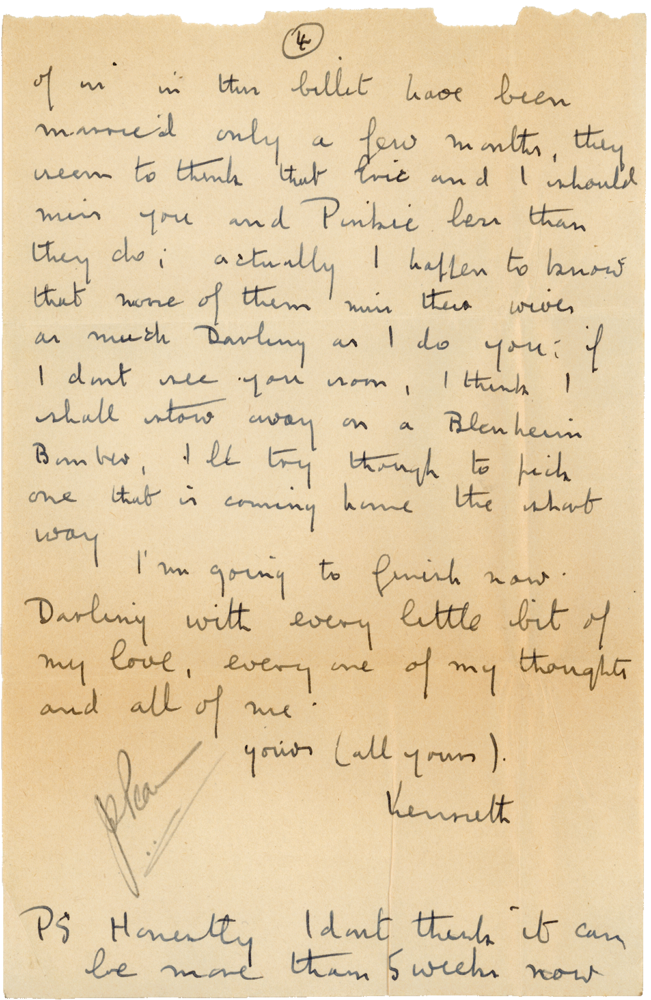 4
of us in this billet have been
married only a few months, they
seem to think that Eric and I should
miss you and Pinkie less than
they do; actually I happen to know
that none of them miss their wives
as much Darling as I do you: if
I dont see you soon, I think I
shall stow away on a Blenheim
Bomber, I'll try though to pick
one that is coming home the short
way
I'm going to finish now.
Darling with every little bit of
my love, every one of my thoughts
and all of me.
yours (all yours).
Kenneth
PS Honestly I dont think it can
be more than 5 weeks now